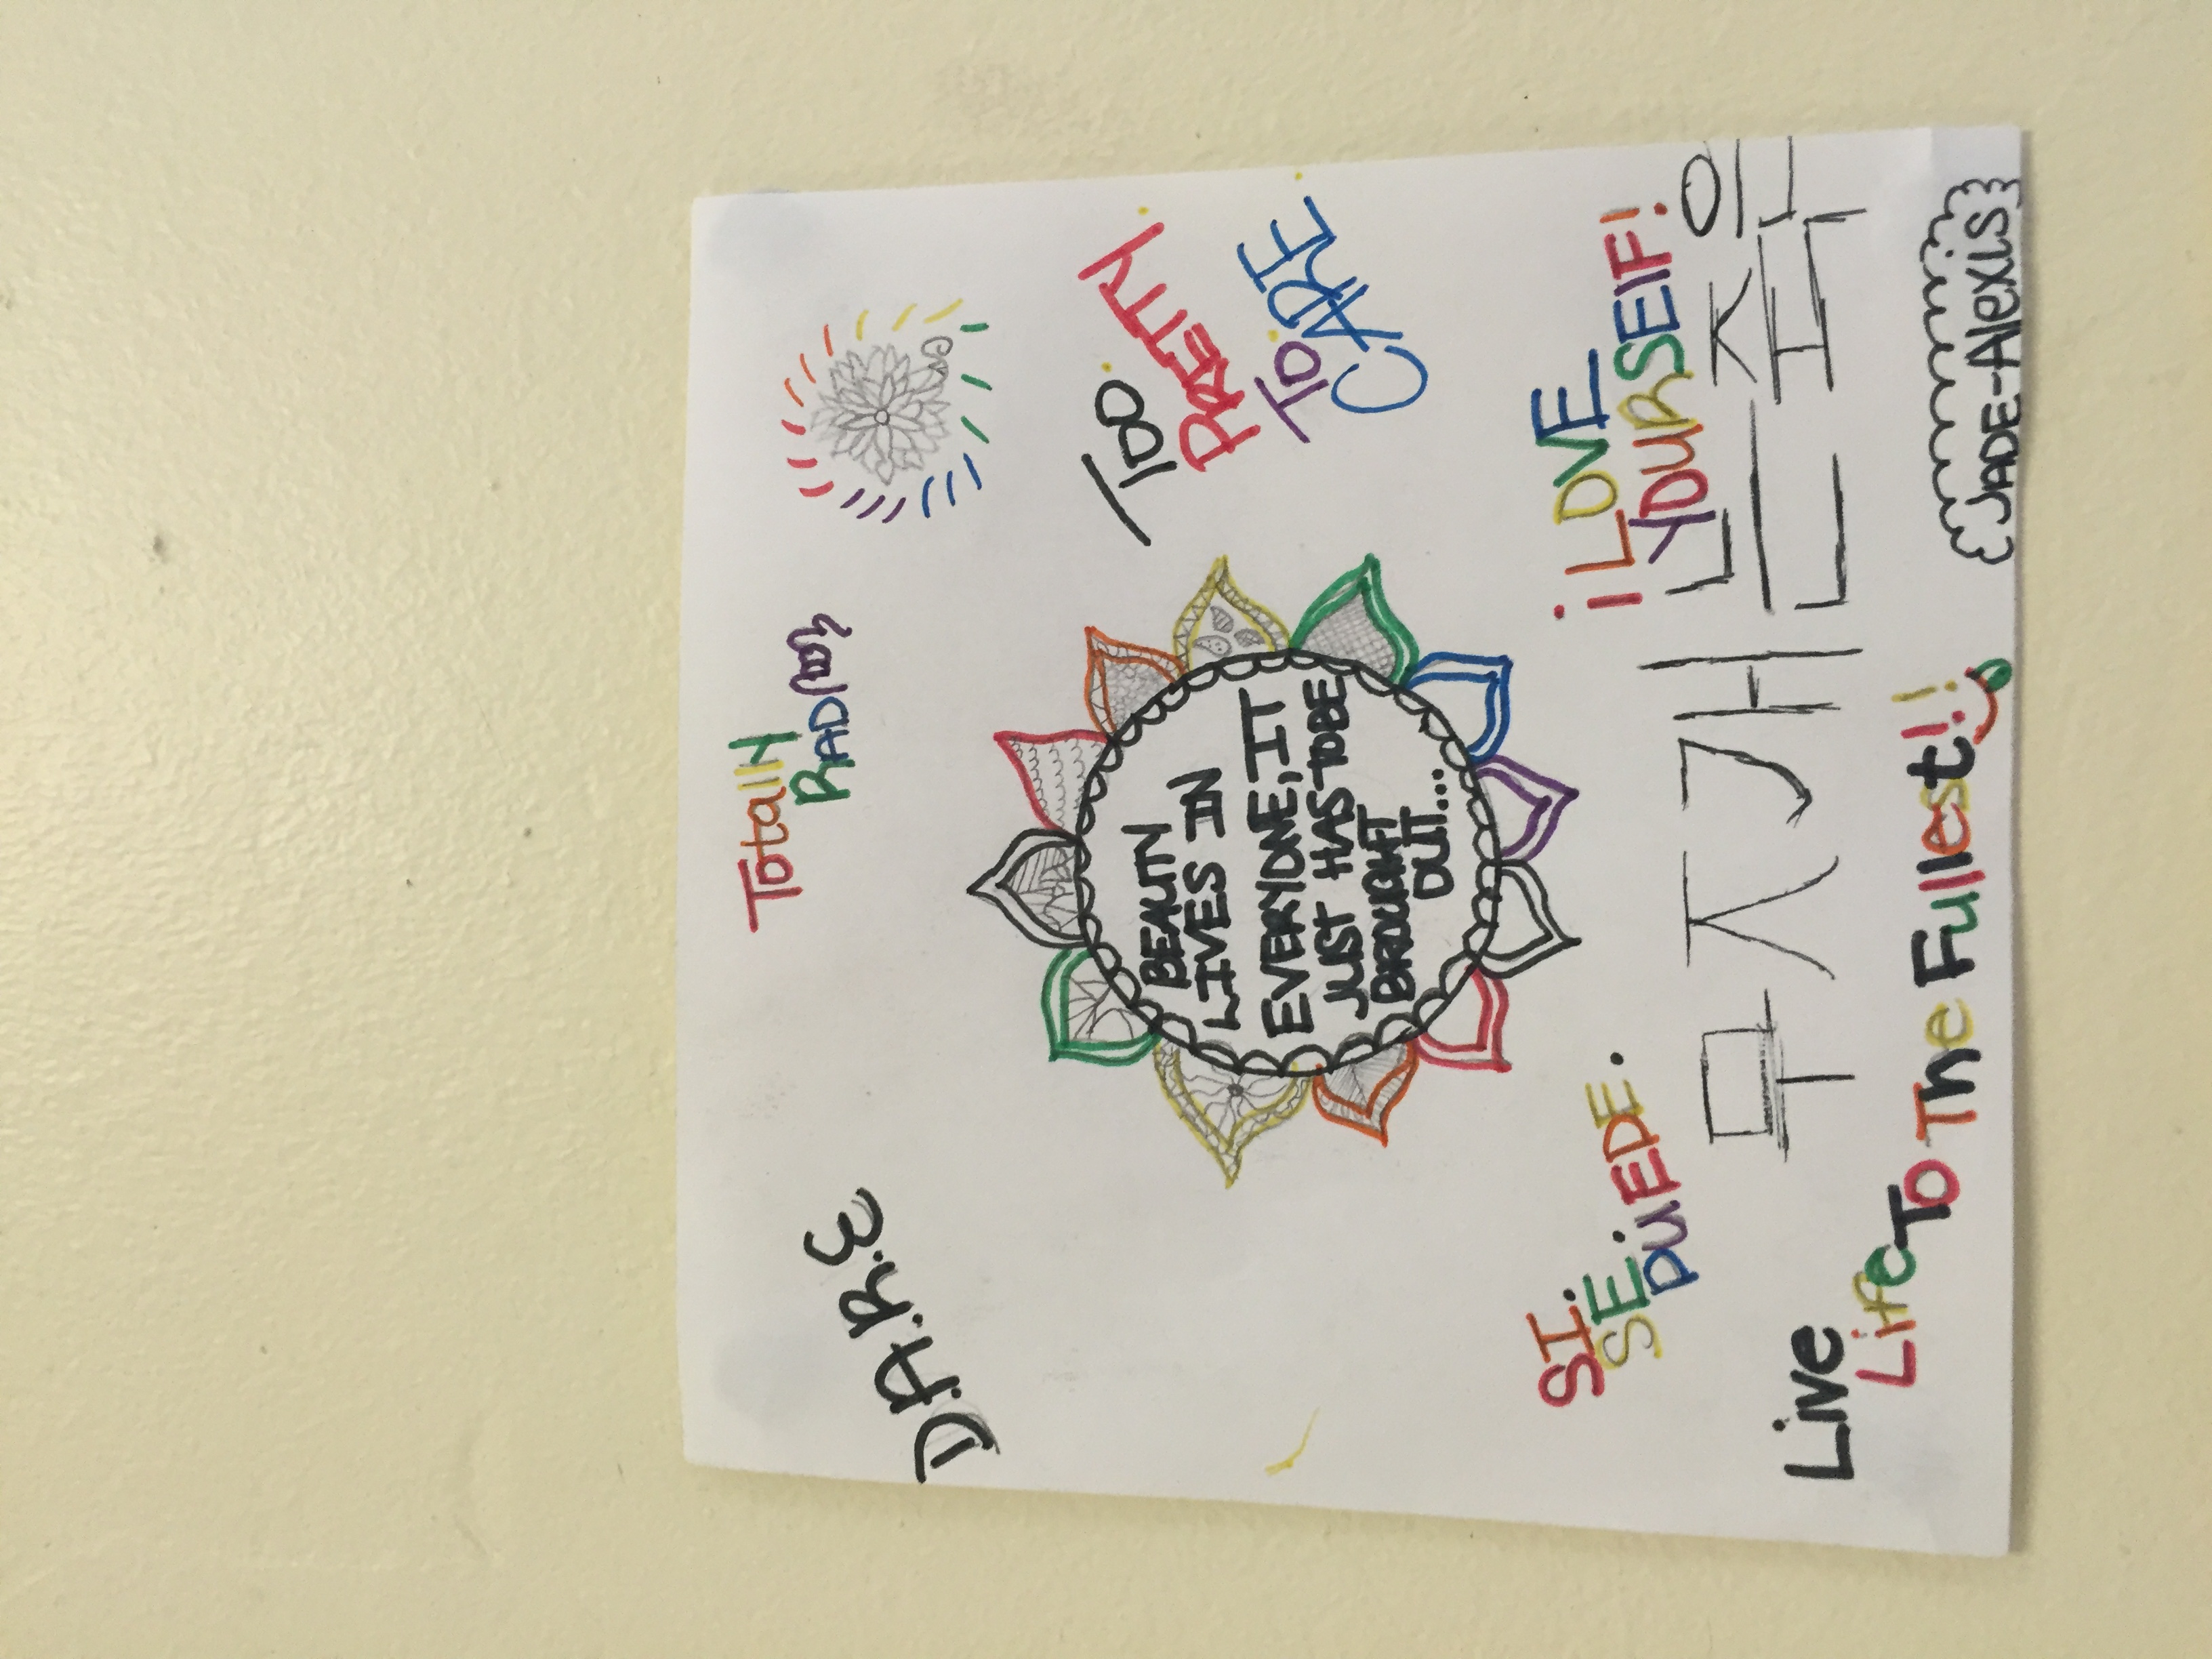 D.A.R.E
Totally
RAD
TOO
PRETTY
TO
CARE
BEAUTY
LIVES IN
EVERYONE, IT
JUST HAS TO BE
BROUGHT
OUT...
SI.
SE.
PUEDE.
¡LOVE
YOURSElF!
Live
Life To The Fullest!!
JADE-AlEXIS